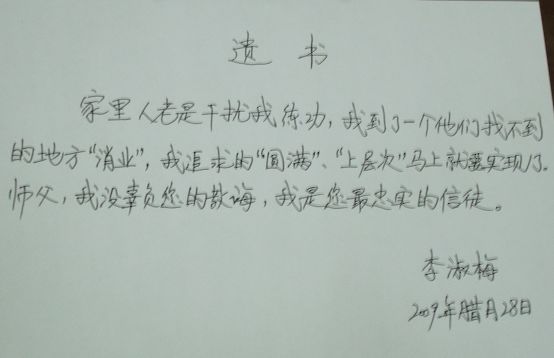 遗书
家里人老是干扰我练功，我到了一个他们找不到
的地方“消业”，我追求的“圆满”、“上层次”马上就要实现了.
师父，我没辜负您的教诲，我是您最忠实的信徒。
李淑梅
2009年腊月28日